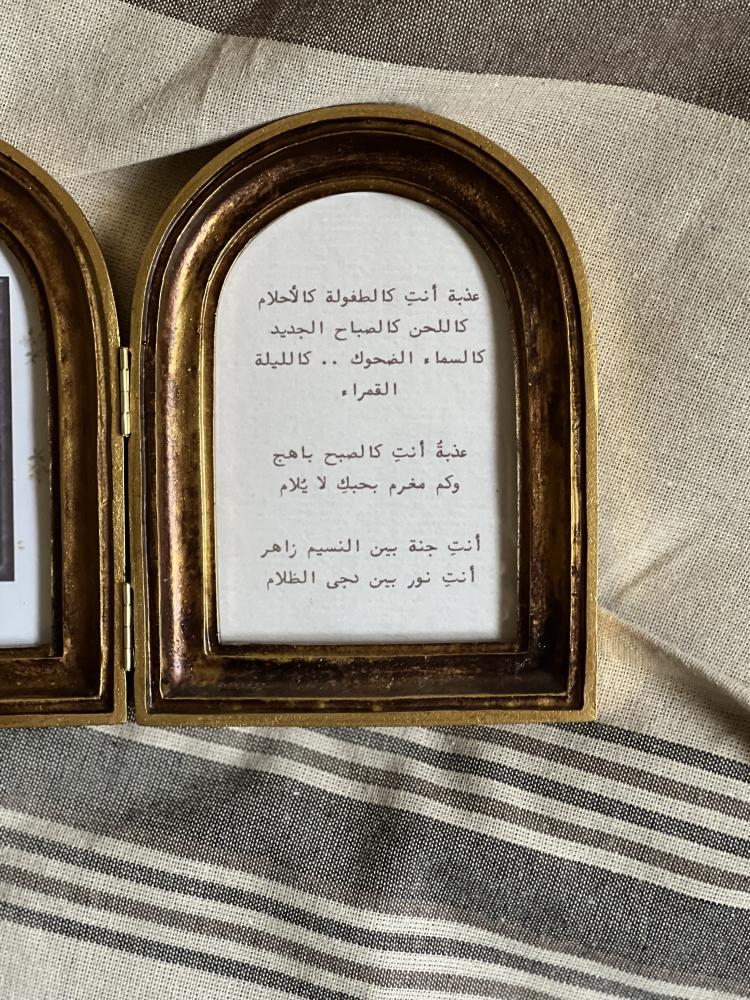 عذبة أنتِ كالطفولة كالأحلام
كاللحن كالصباح الجديد
كالسماء الضحوك .. كالليلة
القمراء
عذبةُ أنتِ كالصبح باهج
وكم مغرم بحبكِ لا يُلام
أنتِ جنة بين النسيم زاهر
أنتِ نور بين دجى الظلام